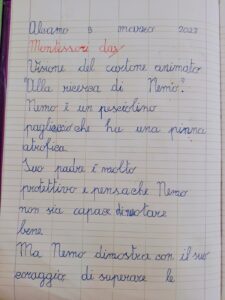 Alcamo 8 marzo 2023
Montessori day
Visione del cartone animato
"Alla ricerca di Nemo".
Nemo è un pesciolino
pagliaccio che ha una pinna
atrofica.
Suo padre è molto
protettivo e pensa che Nemo
non sia capace di nuotare
bene.
Ma Nemo dimostra con il suo
coraggio di superare le